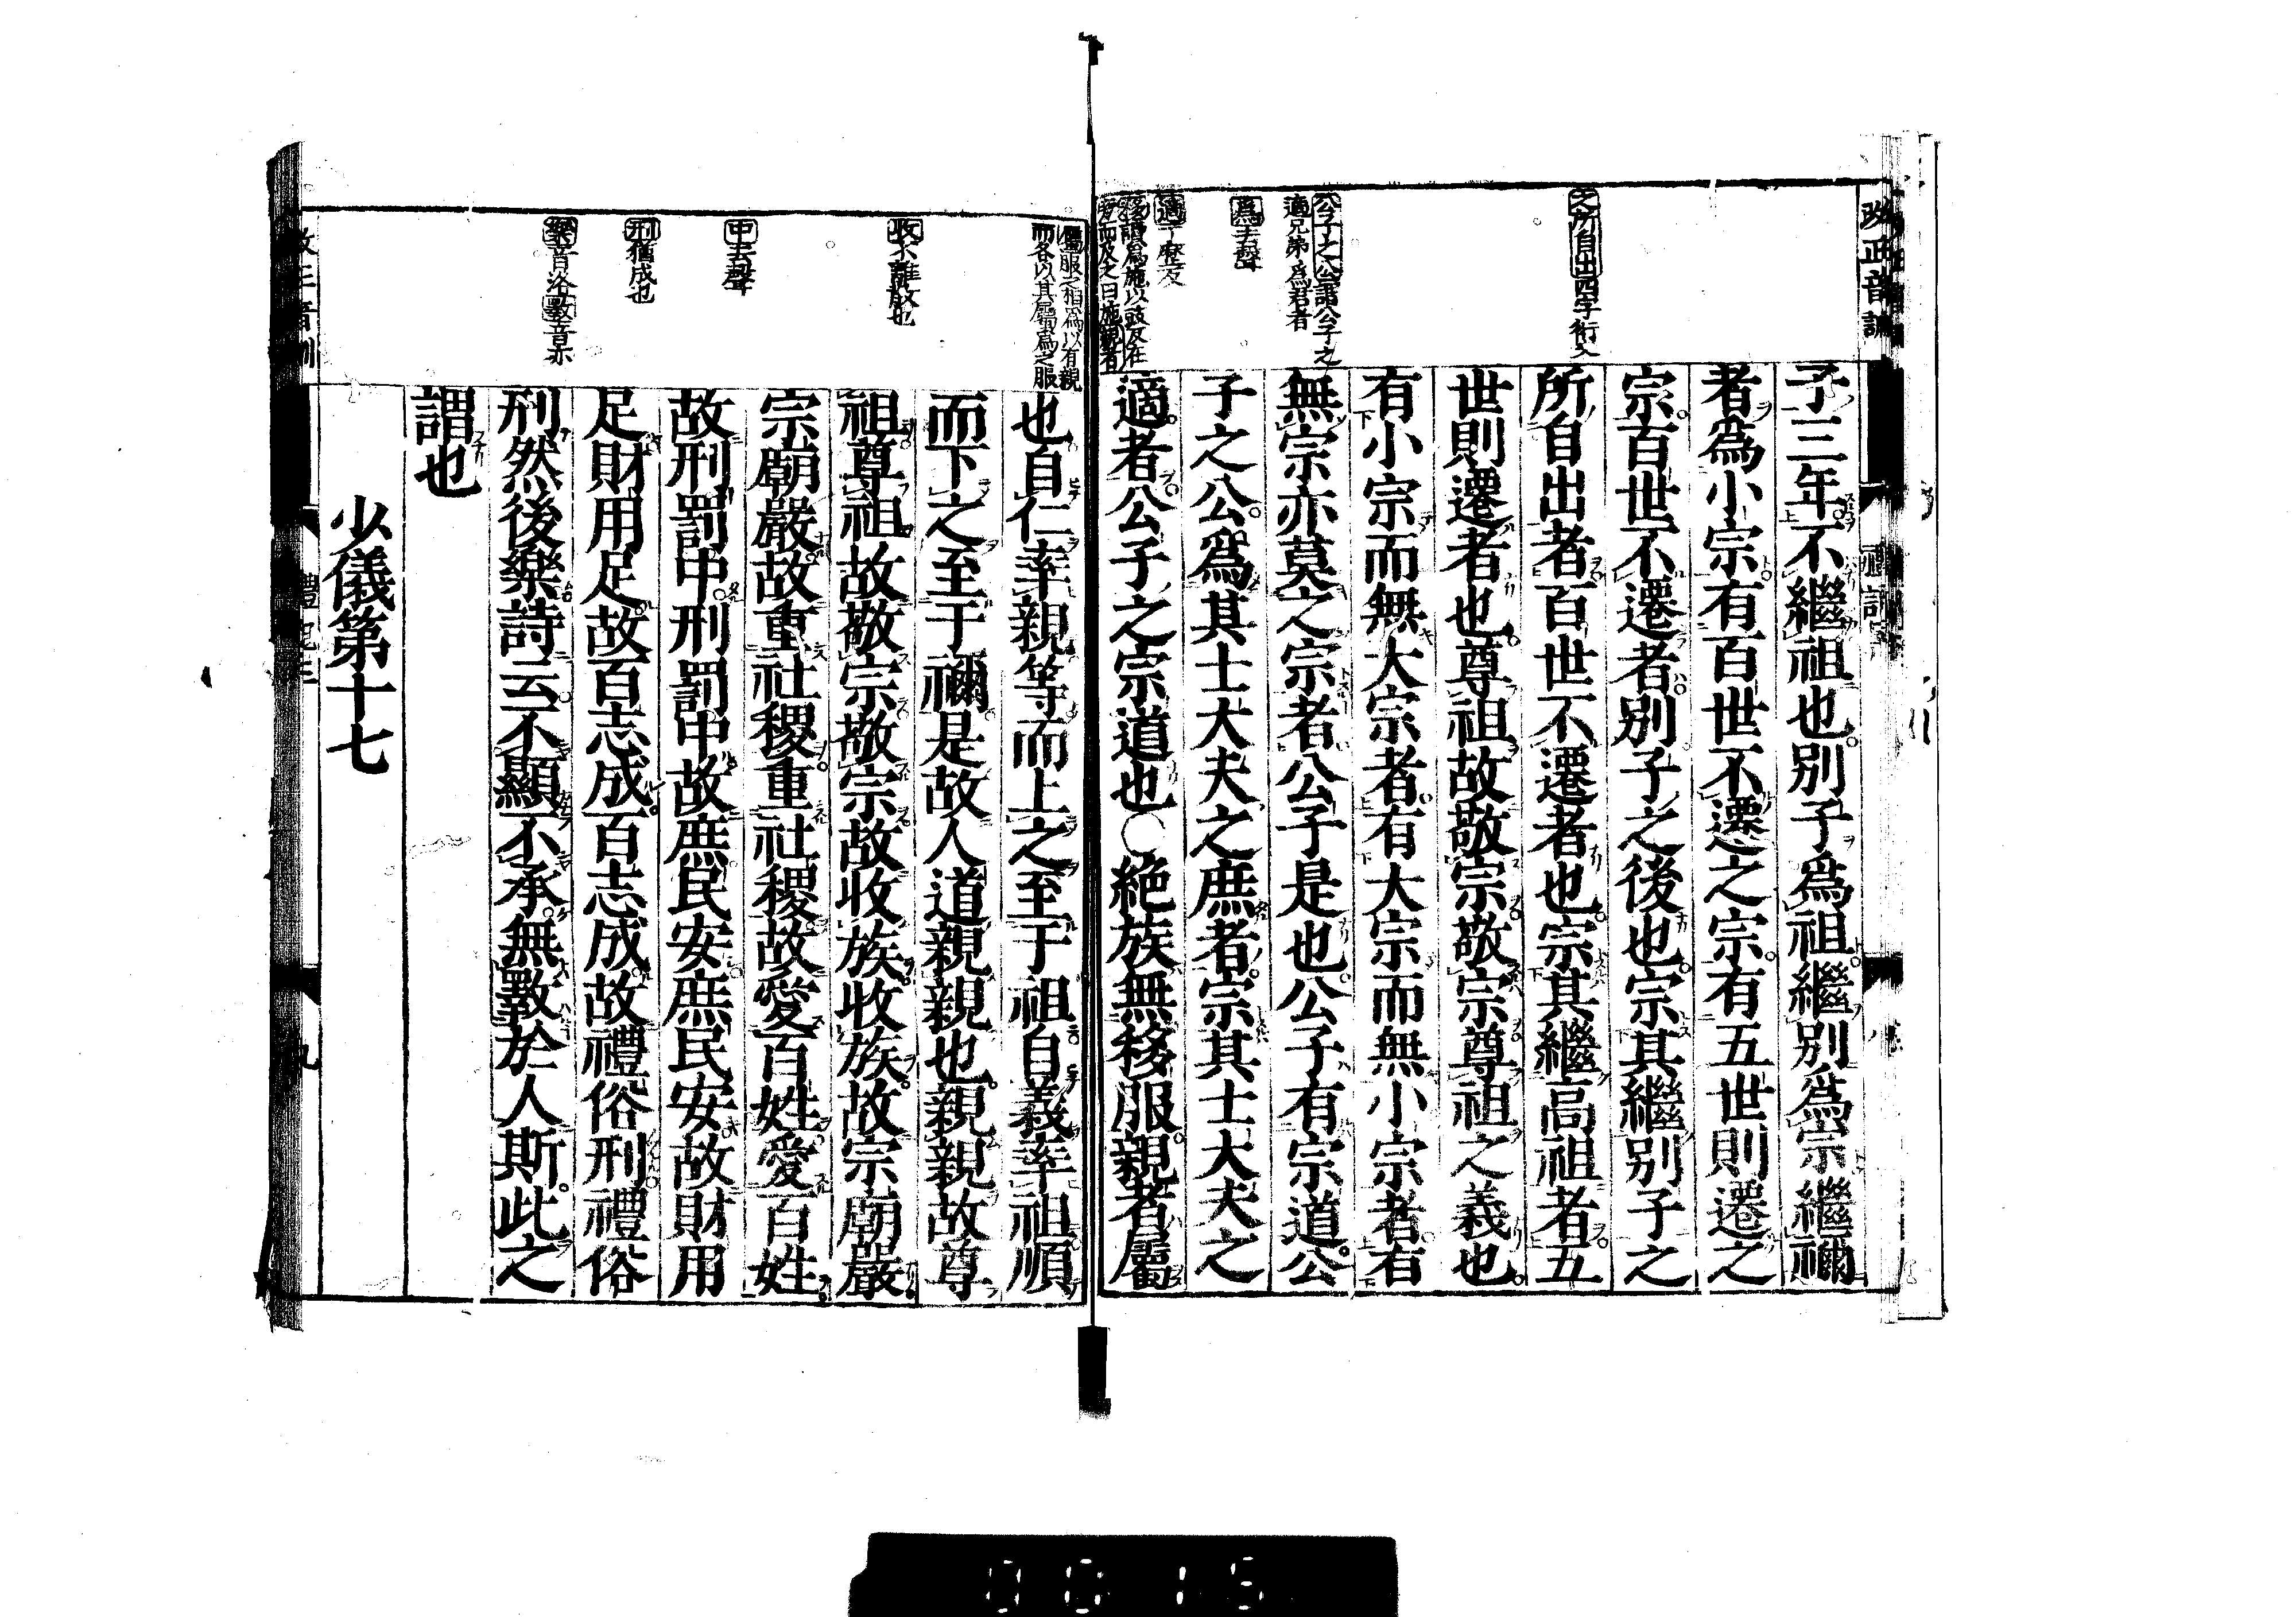 改正音訓
禮記
之所自出四字衍文
公子之公謂公子之
適兄弟爲君者
爲去聲
子三年不繼祖也別子爲祖繼別爲宗繼禰
者爲小宗有百世不遷之宗有五世則遷之
宗百世不遷者別子之後也宗其繼別子之
所自出者百世不遷者也宗其繼高祖者五
世則遷者也尊祖故敬宗敬宗尊祖之義也
有小宗而無大宗者有大宗而無小宗者有
無宗亦莫之宗者公子是也公子有宗道公
子之公爲其士大夫之庶者宗其士大夫之
適者公子之宗道也○絶族無移服親者屬
屬服之相爲以有親
而各以其屬爲之服
收不離散也
中去聲
刑猶成也
樂音洛斁音亦
也自仁率親等而上之至于祖自義率祖順
而下之至于禰是故人道親親也親親故尊
祖尊祖故敬宗敬宗故收族收族故宗廟嚴
宗廟嚴故重社稷重社稷故愛百姓愛百姓
故刑罰中刑罰中故庶民安庶民安故財用
足財用足故百志成百志成故禮俗刑禮俗
刑然後樂詩云不顯不承無斁於人斯此之
謂也
少儀第十七
0015